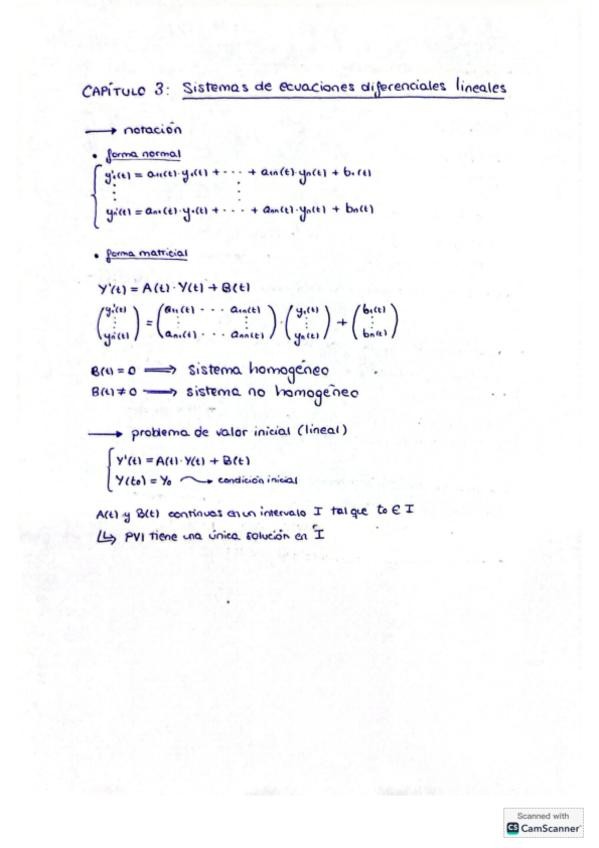 CAPÍTULO 3: Sistemas de ecuaciones diferenciales lineales
⟶ notación
• forma normal
{ y₁'(t) = a₁₁(t)·y₁(t) + ··· + a₁ₙ(t)·yₙ(t) + b₁(t)
⋮ ⋮
yₙ'(t) = aₙ₁(t)·y₁(t) + ··· + aₙₙ(t)·yₙ(t) + bₙ(t)
• forma matricial
Y'(t) = A(t)·Y(t) + B(t)
(y₁'(t) ⋮ yₙ'(t)) = (a₁₁(t) ··· a₁ₙ(t) ⋮ ⋮ aₙ₁(t) ··· aₙₙ(t)) · (y₁(t) ⋮ yₙ(t)) + (b₁(t) ⋮ bₙ(t))
B(t) = 0 ⟹ sistema homogéneo
B(t) ≠ 0 ⟶ sistema no homogéneo
⟶ problema de valor inicial (lineal)
{ Y'(t) = A(t)·Y(t) + B(t)
Y(t₀) = Y₀ ⇝ condición inicial
A(t) y B(t) continuas en un intervalo I tal que t₀ ∈ I
↳ PVI tiene una única solución en I
Scanned with
CS CamScanner